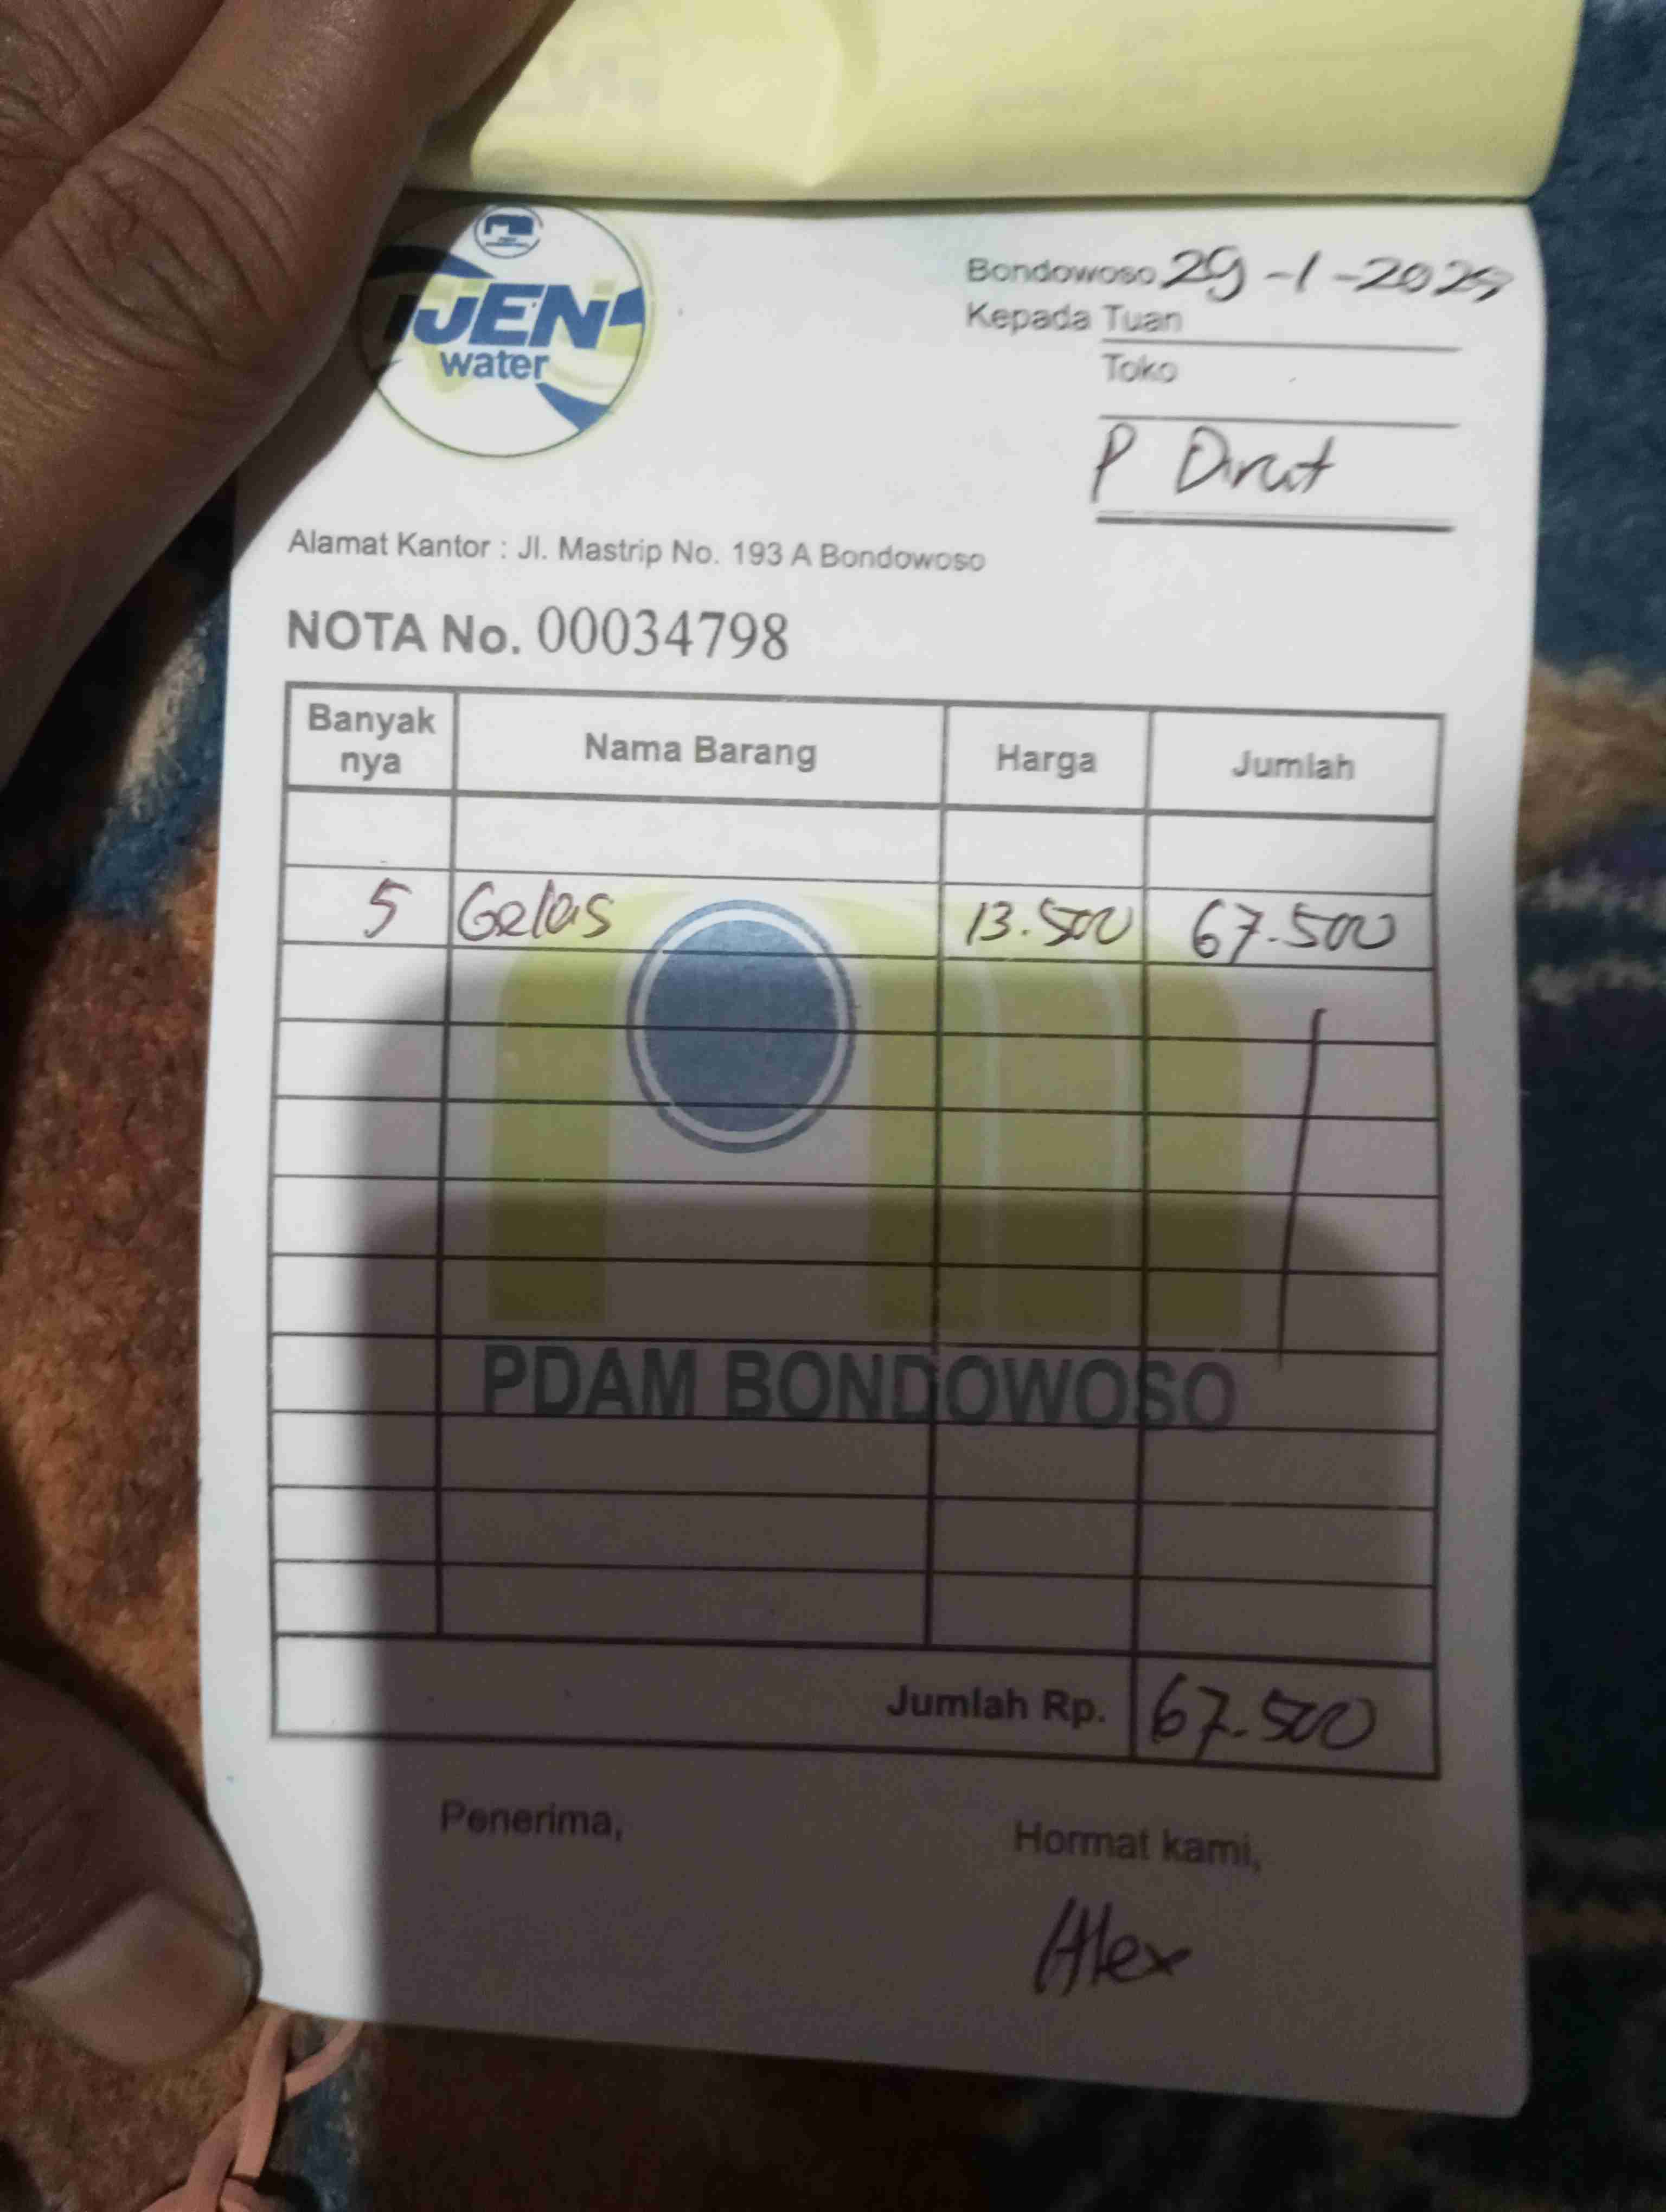 IJEN
water
Bondowoso 29-1-202
Kepada Tuan
Toko
P Dirut
Alamat Kantor : Jl. Mastrip No. 193 A Bondowoso
NOTA No. 00034798
Banyak nya Nama Barang Harga Jumlah
5 Gelas 13.500 67.500
PDAM BONDOWOSO
Jumlah Rp. 67.500
Penerima, Hormat kami,
Alex